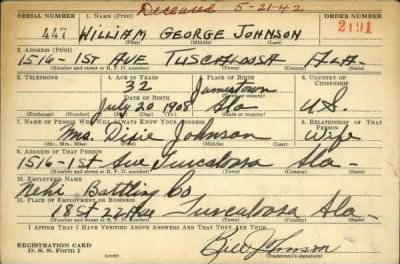 Deceased 5-21-42
SERIAL NUMBER 1. NAME (Print) ORDER NUMBER
447 WILLIAM GEORGE JOHNSON 2191
(First) (Middle) (Last)
2. ADDRESS (Print)
1516-1ST AVE TUSCALOOSA ALA-
(Number and street or R. F. D. number) (Town) (County) (State)
3. TELEPHONE 4. AGE IN YEARS 5. PLACE OF BIRTH 6. COUNTRY OF CITIZENSHIP
32 Jamestown
DATE OF BIRTH (Town or county)
July 20 1908 Ala U.S.
(Exchange) (Number) (Mo.) (Day) (Yr.) (State or country)
7. NAME OF PERSON WHO WILL ALWAYS KNOW YOUR ADDRESS 8. RELATIONSHIP OF THAT PERSON
Mrs. Dixie Johnson Wife
(Mr., Mrs., Miss) (First) (Middle) (Last)
9. ADDRESS OF THAT PERSON
1516-1st Ave Tuscaloosa Ala-
(Number and street or R. F. D. number) (Town) (County) (State)
10. EMPLOYER'S NAME
Nehi Bottling Co
11. PLACE OF EMPLOYMENT OR BUSINESS
18 St 22 Ave Tuscaloosa Ala-
(Number and street or R. F. D. number) (Town) (County) (State)
I AFFIRM THAT I HAVE VERIFIED ABOVE ANSWERS AND THAT THEY ARE TRUE.
REGISTRATION CARD
D. S. S. FORM 1 Bill Johnson
(Registrant's signature)